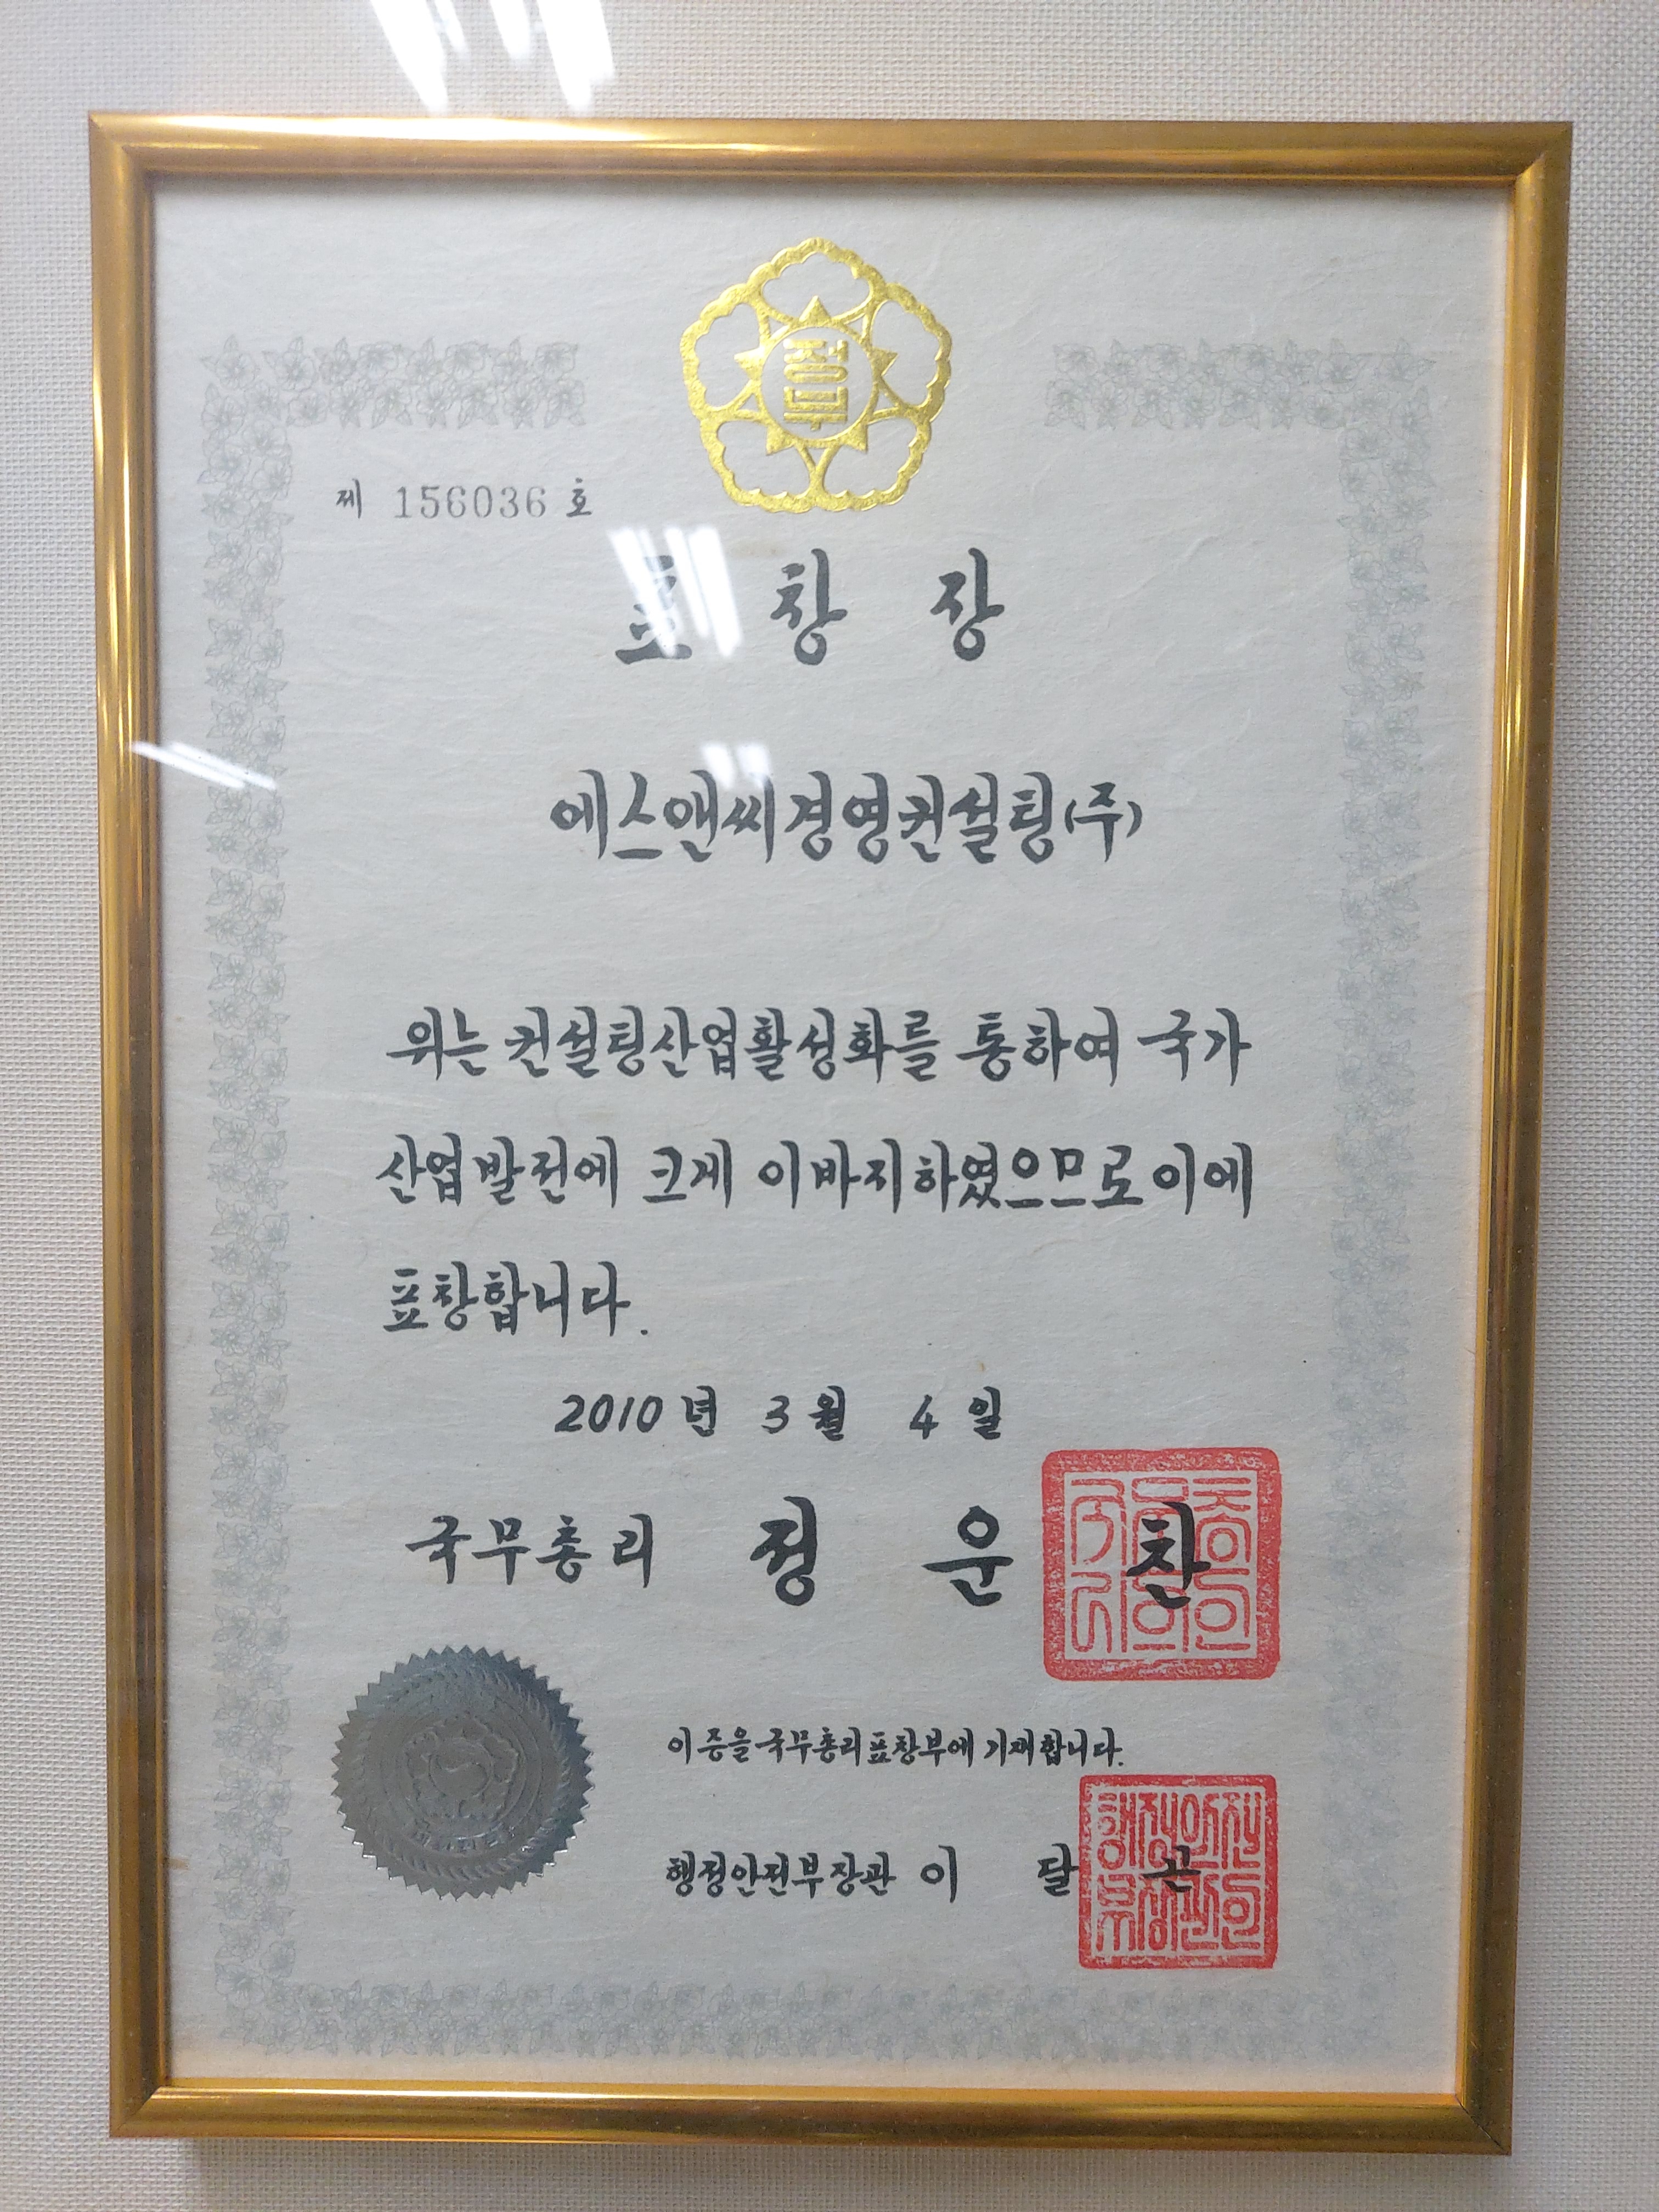 정부
제 156036 호
표 창 장
에스앤씨경영컨설팅(주)
위는 컨설팅산업활성화를 통하여 국가
산업발전에 크게 이바지하였으므로 이에
표창합니다.
2010년 3월 4일
국무총리 정 운 찬
이 증을 국무총리표창부에 기재합니다.
행정안전부장관 이 달 곤